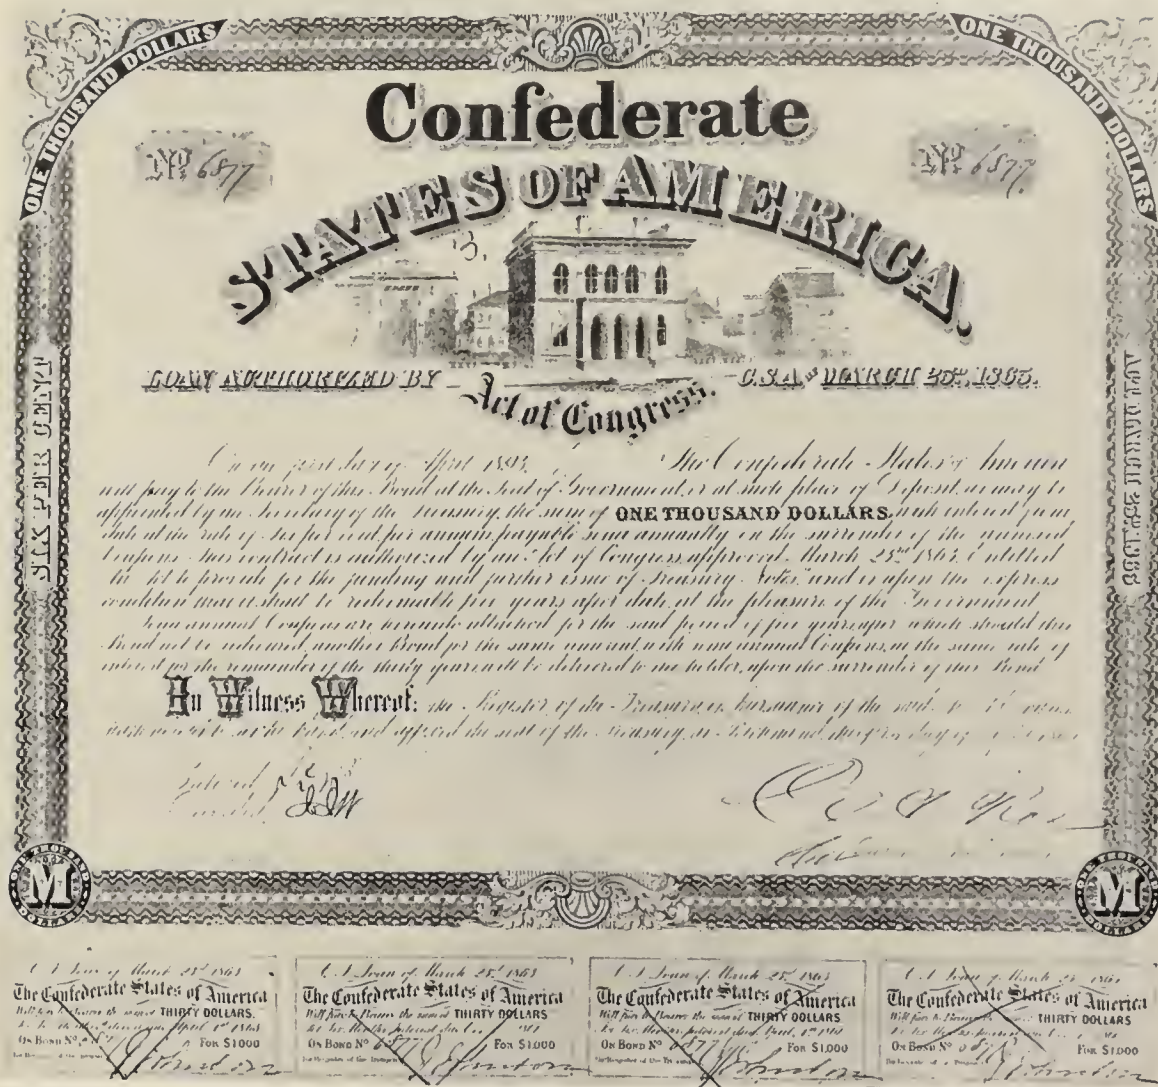 ONE THOUSAND DOLLARS
ONE THOUSAND DOLLARS
Confederate
No 6877
No 6877
STATES OF AMERICA.
B.
LOAN AUTHORIZED BY
C.S.A. OF MARCH 23rd, 1863.
Act of Congress.
SIX PER CENT
ACT MARCH 23d, 1863
On the first day of April 1893, The Confederate States of America
will pay to the Bearer of this Bond at the Seat of Government, or at such place of Deposit as may be
appointed by the Secretary of the Treasury, the sum of ONE THOUSAND DOLLARS with interest from
date at the rate of Six per cent per annum, payable semi annually on the surrender of the annexed
Coupons. This contract is authorized by an Act of Congress approved March 23rd 1863, Entitled
An Act to provide for the funding and further issue of Treasury Notes, and is upon the express
condition that it shall be redeemable five years after date, at the pleasure of the Government
annual Coupons are hereunto attached for the said period of five years, after which should this
Bond not be redeemed, another Bond for the same amount, with semi annual Coupons, at the same rate of
interest for the remainder of the thirty years will be delivered to the holder, upon the surrender of this Bond
In Witness Whereof, the Register of the Treasury, in pursuance of the said
set his hand, and affixed the seal of the Treasury, at Richmond, this day of
Entered
ONE THOUSAND DOLLARS
M
ONE THOUSAND DOLLARS
M
C. S. Loan of March 23d 1863
The Confederate States of America
Will pay to Bearer the sum of THIRTY DOLLARS
for Six Months interest due April 1st 1868
ON BOND No FOR $1.000
C. S. Loan of March 23d 1863
The Confederate States of America
Will pay to Bearer the sum of THIRTY DOLLARS
for Six Months interest due
ON BOND No 6877 FOR $1.000
For Register of the Treasury
C. S. Loan of March 23d 1863
The Confederate States of America
Will pay to Bearer the sum of THIRTY DOLLARS
for Six Months interest due April 1st
ON BOND No 6877 FOR $1.000
For Register of the Treasury
C. S. Loan of March 23d 1863
The Confederate States of America
Will pay to Bearer the sum of THIRTY DOLLARS
for Six Months interest due
ON BOND No FOR $1.000